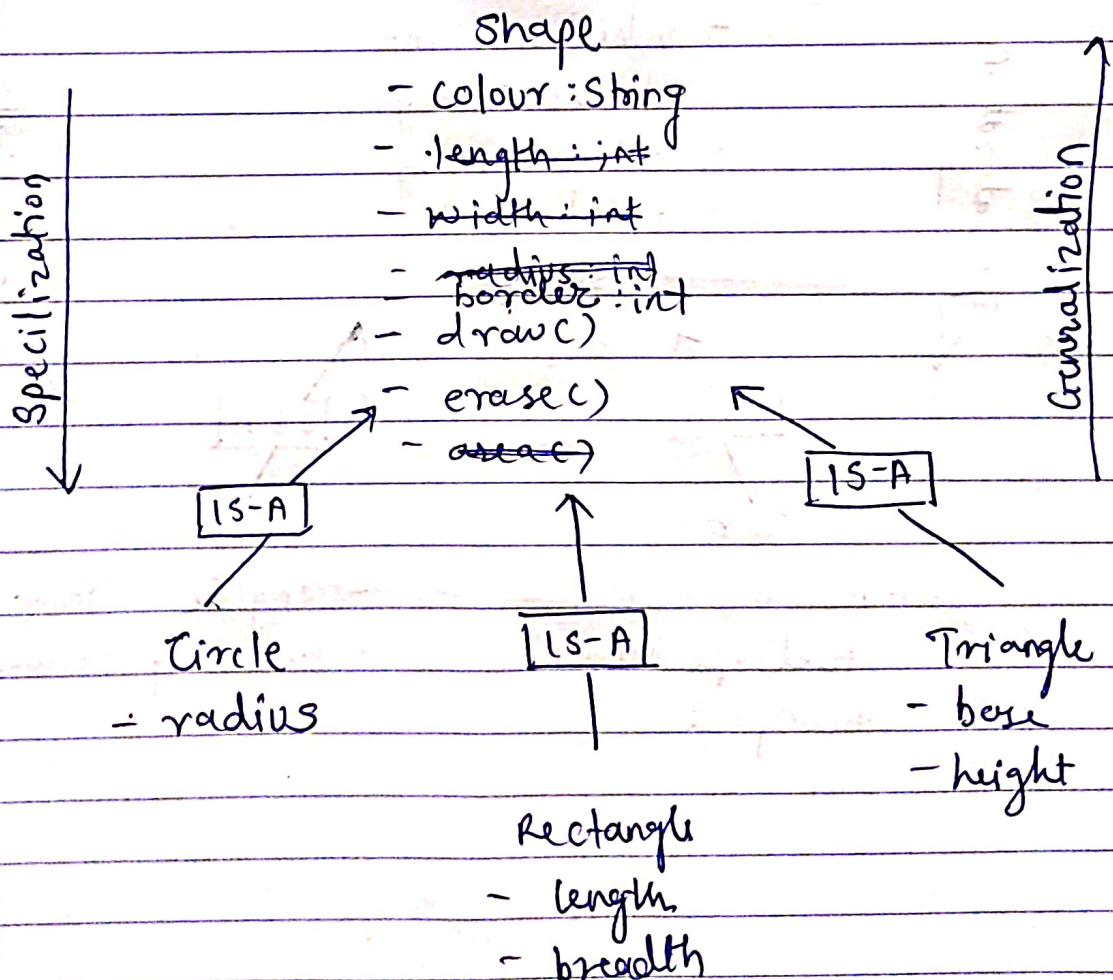 Shape
- colour : String
- length : int
- width : int
- radius : int
- border : int
- draw()
- erase()
- area()
Specilization
Genralization
IS-A
IS-A
IS-A
Circle
- radius
Triangle
- base
- height
Rectangle
- length
- breadth